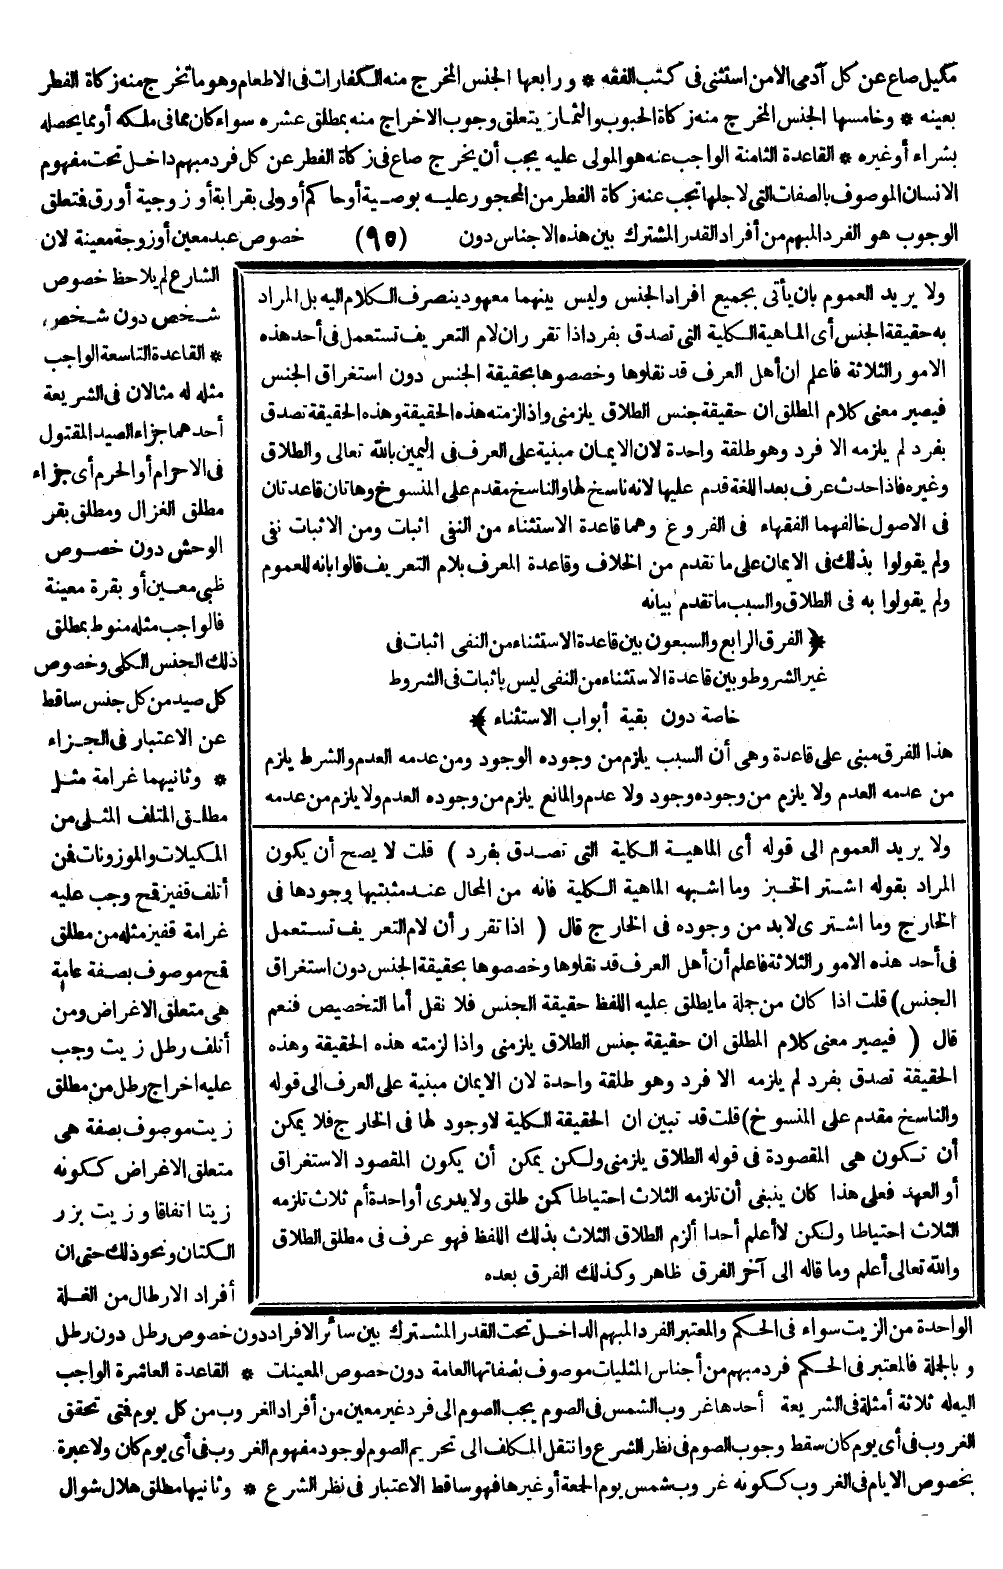 مكيل صاع عن كل آدمى الامن استثنى فى كتب الفقه * ورابعها الجنس المخرج منه الكفارات فى الاطعام وهو ما تخرج منه زكاة الفطر
بعينه * وخامسها الجنس المخرج منه زكاة الحبوب والثمار يتعلق وجوب الاخراج منه بمطلق عشره سواء كان مما فى ملكه أو مما يحصله
بشراء أو غيره * القاعدة الثامنة الواجب عنه هو المولى عليه يجب أن يخرج صاع فى زكاة الفطر عن كل فرد مبهم داخل تحت مفهوم
الانسان الموصوف بالصفات التى لاجلها تجب عنه زكاة الفطر من المحجور عليه بوصية أو حاكم أو ولى بقرابة أو زوجية أو رق فتعلق
الوجوب هو الفرد المبهم من أفراد القدر المشترك بين هذه الاجناس دون (٩٥) خصوص عبد معين أو زوجة معينة لان
الشارع لم يلاحظ خصوص
شخص دون شخص،
* القاعدة التاسعة الواجب
مثله له مثالان فى الشريعة
أحدهما جزاء الصيد المقتول
فى الاحرام أو الحرم أى جزاء
مطلق الغزال ومطلق بقر
الوحش دون خصوص
ظبى معين أو بقرة معينة
فالواجب مثله منوط بمطلق
ذلك الجنس الكلى وخصوص
كل صيد من كل جنس ساقط
عن الاعتبار فى الجزاء
* وثانيهما غرامة مثل
مطلق المتلف المثلى من
المكيلات والموزونات فمن
أتلف قفيز قمح وجب عليه
غرامة قفيز مثله من مطلق
قمح موصوف بصفة عامة
هى متعلق الاغراض ومن
أتلف رطل زيت وجب
عليه اخراج رطل من مطلق
زيت موصوف بصفة هى
متعلق الاغراض ككونه
زيتا انفاقا وزيت بزر
الكتان ونحو ذلك حتى ان
أفراد الارطال من الغلة
ولا يريد العموم بان يأتى بجميع افراد الجنس وليس بينهما معهود ينصرف الكلام اليه بل المراد
به حقيقة الجنس أى الماهية الكلية التى تصدق بفرد اذا تقرر ان لام التعريف تستعمل فى أحد هذه
الامور الثلاثة فاعلم ان أهل العرف قد نقلوها وخصصوها بحقيقة الجنس دون استغراق الجنس
فيصير معنى كلام المطلق ان حقيقة جنس الطلاق يلزمنى واذا لزمته هذه الحقيقة وهذه الحقيقة تصدق
بفرد لم يلزمه الا فرد وهو طلقة واحدة لان الايمان مبنية على العرف فى اليمين بالله تعالى والطلاق
وغيره فاذا حدث عرف بعد اللغة قدم عليها لانه ناسخ لها والناسخ مقدم على المنسوخ وهاتان قاعدتان
فى الاصول خالفهما الفقهاء فى الفروع وهما قاعدة الاستثناء من النفى اثبات ومن الاثبات نفى
ولم يقولوا بذلك فى الايمان على ما تقدم من الخلاف وقاعدة المعرف بلام التعريف قالوا بانه للعموم
ولم يقولوا به فى الطلاق والسبب ما تقدم بيانه
﴿ الفرق الرابع والسبعون بين قاعدة الاستثناء من النفى اثبات فى
غير الشروط وبين قاعدة الاستثناء من النفى ليس باثبات فى الشروط
خاصة دون بقية أبواب الاستثناء ﴾
هذا الفرق مبنى على قاعدة وهى أن السبب يلزم من وجوده الوجود ومن عدمه العدم والشرط يلزم
من عدمه العدم ولا يلزم من وجوده وجود ولا عدم والمانع يلزم من وجوده العدم ولا يلزم من عدمه
ولا يريد العموم الى قوله أى الماهية الكلية التى تصدق بفرد ) قلت لا يصح أن يكون
المراد بقوله اشتر الخبز وما اشبهه الماهية الكلية فانه من المحال عند مثبتيها وجودها فى
الخارج وما اشترى لابد من وجوده فى الخارج قال ( اذا تقرر أن لام التعريف تستعمل
فى أحد هذه الامور الثلاثة فاعلم أن أهل العرف قد نقلوها وخصصوها بحقيقة الجنس دون استغراق
الجنس) قلت اذا كان من جملة ما يطلق عليه اللفظ حقيقة الجنس فلا نقل أما التخصيص فنعم
قال ( فيصير معنى كلام المطلق ان حقيقة جنس الطلاق يلزمنى واذا لزمته هذه الحقيقة وهذه
الحقيقة تصدق بفرد لم يلزمه الا فرد وهو طلقة واحدة لان الايمان مبنية على العرف الى قوله
والناسخ مقدم على المنسوخ) قلت قد تبين ان الحقيقة الكلية لاوجود لها فى الخارج فلا يمكن
أن تكون هى المقصودة فى قوله الطلاق يلزمنى ولكن يمكن أن يكون المقصود الاستغراق
أو العهد فعلى هذا كان ينبغى أن تلزمه الثلاث احتياطا كمن طلق ولا يدرى أواحدة أم ثلاث تلزمه
الثلاث احتياطا ولكن لا أعلم أحدا ألزم الطلاق الثلاث بذلك اللفظ فهو عرف فى مطلق الطلاق
والله تعالى أعلم وما قاله الى آخر الفرق ظاهر وكذلك الفرق بعده
الواحدة من الزيت سواء فى الحكم والمعتبر الفرد المبهم الداخل تحت القدر المشترك بين سائر الافراد دون خصوص رطل دون رطل
وبالجملة فالمعتبر فى الحكم فرد مبهم من أجناس المثليات موصوف بصفاتها العامة دون خصوص المعينات * القاعدة العاشرة الواجب
اليه له ثلاثة أمثلة فى الشريعة أحدها غروب الشمس فى الصوم يجب الصوم الى فرد غير معين من أفراد الغروب من كل يوم فتى تحقق
الغروب فى أى يوم كان سقط وجوب الصوم فى نظر الشرع وانتقل المكلف الى تحريم الصوم لوجود مفهوم الغروب فى أى يوم كان ولا عبرة
بخصوص الايام فى الغروب ككونه غروب شمس يوم الجمعة أو غيرها فهو ساقط الاعتبار فى نظر الشرع * وثانيها مطلق هلال شوال